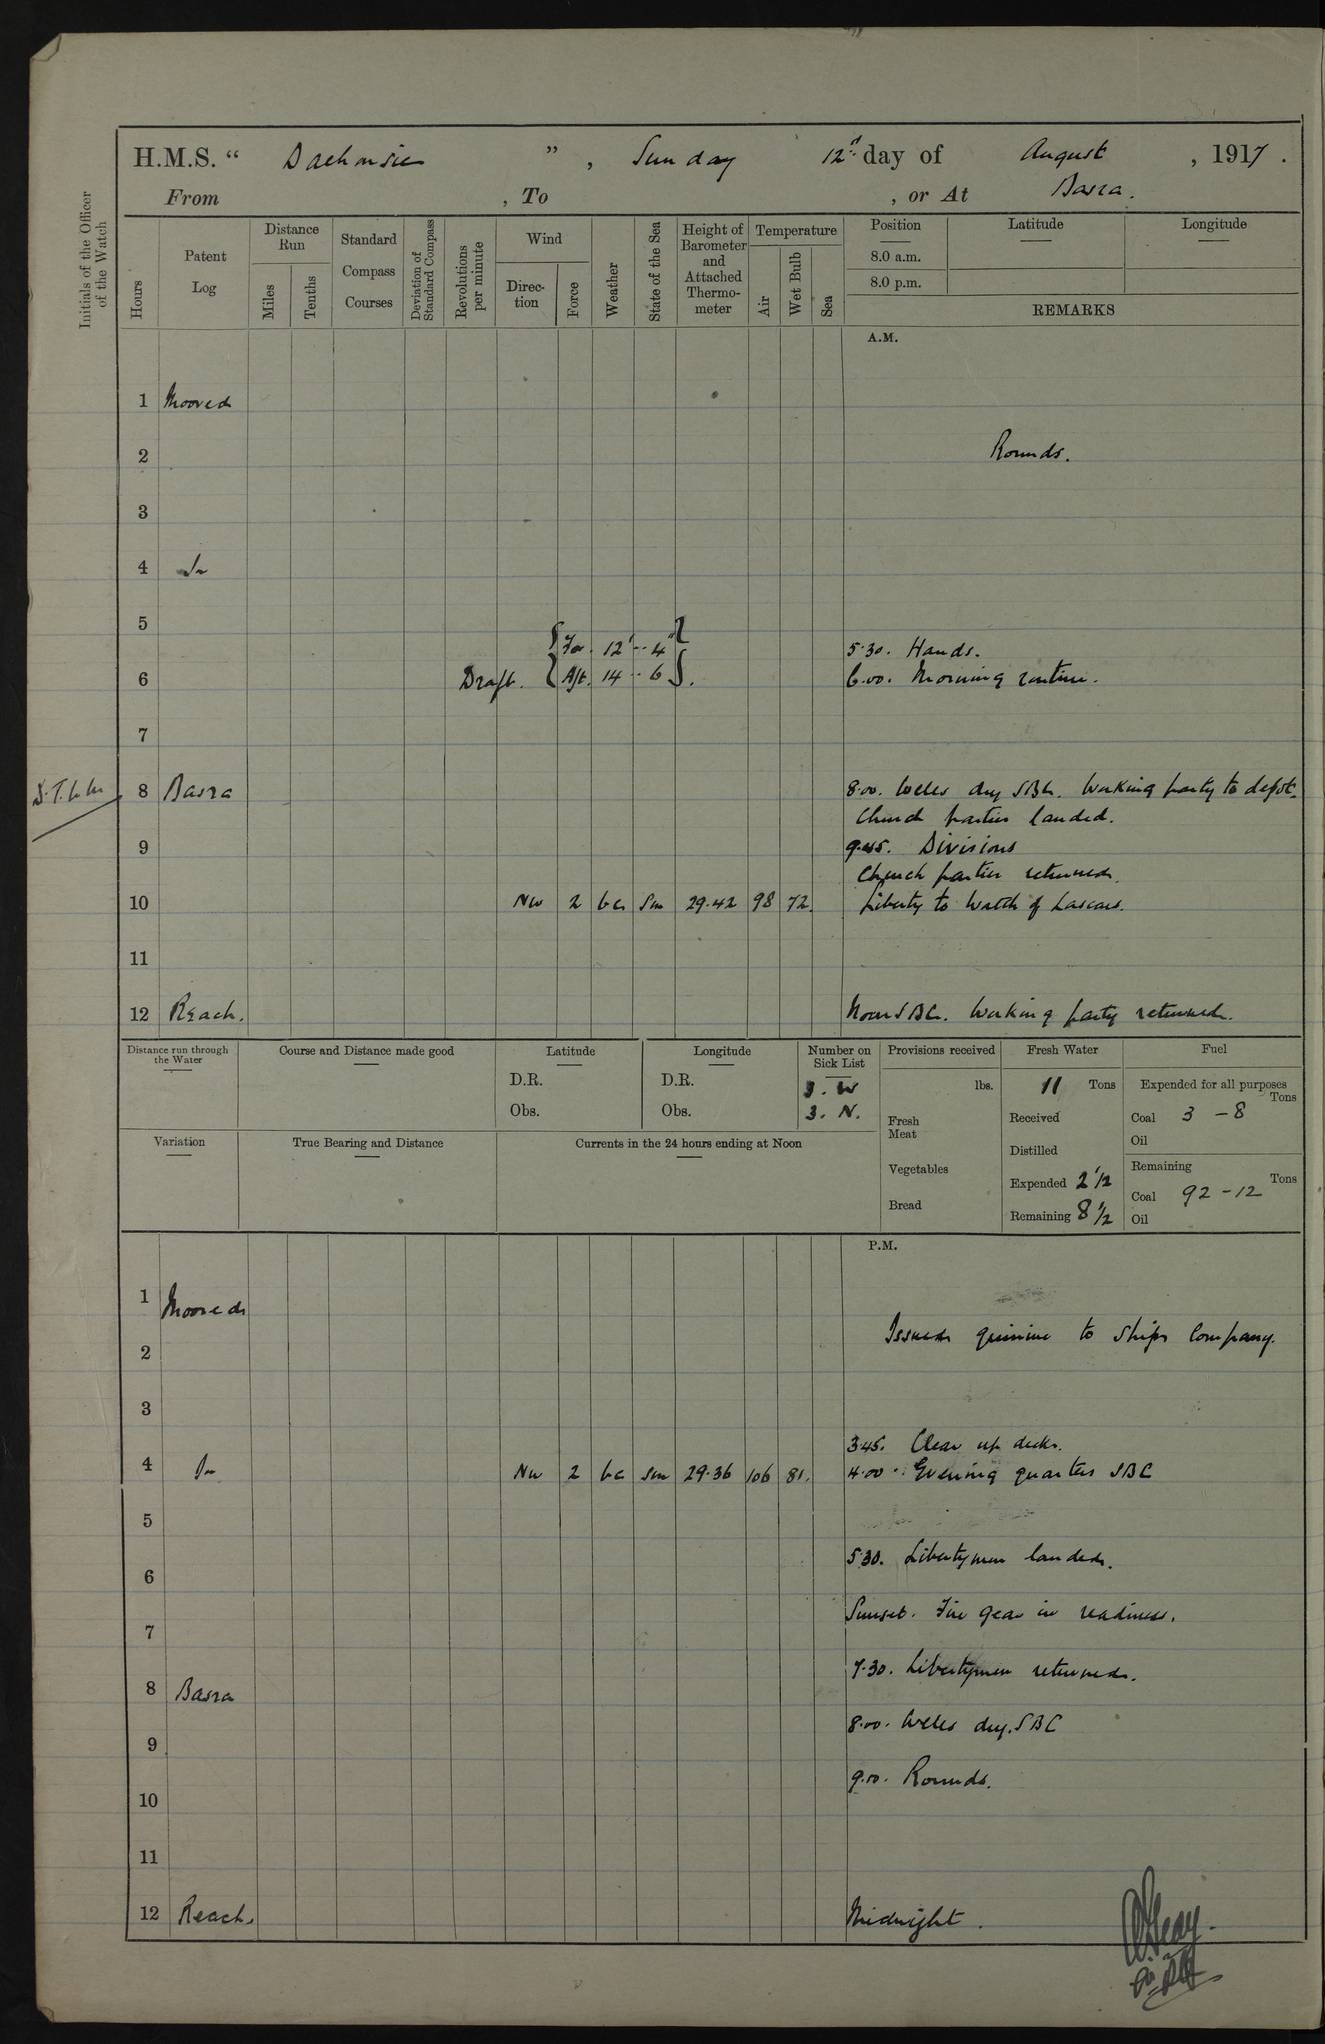 H.M.S. “ Dalhousie ” , Sunday 12th day of August , 1917 .
From , To , or At Basra.
Initials of the Officer of the Watch
Hours
Patent Log
Distance Run
Miles
Tenths
Standard Compass Courses
Deviation of Standard Compass
Revolutions per minute
Wind
Direction
Force
Weather
State of the Sea
Height of Barometer and Attached Thermometer
Temperature
Air
Wet Bulb
Sea
Position
Latitude
Longitude
8.0 a.m.
8.0 p.m.
REMARKS
A.M.
1 Moored
2 Rounds.
3
4 In
5
Draft. { For. 12' .. 4" }
5.30. Hands.
6 { Aft. 14 .. 6 }. 6.00. Morning routine.
7
8 Basra 8.00. Wells dry SBC. Working party to depot.
Church parties landed.
9 9.45. Divisions
Church parties returned.
10 NW 2 bc Sm 29.42 98 72. Liberty to Watch of Lascars.
11
12 Reach. Noon SBC. Working party returned.
Distance run through the Water
Course and Distance made good
Latitude
D.R.
Obs.
Longitude
D.R.
Obs.
Number on Sick List
3. W
3. N.
Provisions received
lbs.
Fresh Meat
Vegetables
Bread
Fresh Water
11 Tons
Received
Distilled
Expended 2 1/2
Remaining 8 1/2
Fuel
Expended for all purposes
Tons
Coal 3 - 8
Oil
Remaining
Tons
Coal 92 - 12
Oil
Variation
True Bearing and Distance
Currents in the 24 hours ending at Noon
P.M.
1 Moored
2 Issued quinine to Ships Company.
3
3.45. Clear up decks.
4 In NW 2 bc Sm 29.36 106 81. 4.00. Evening quarters SBC
5
5.30. Libertymen landed.
6
Sunset. Fire gear in readiness.
7
7.30. Libertymen returned.
8 Basra
8.00. Wells dry. SBC
9
9.00. Rounds.
10
11
12 Reach. Midnight.